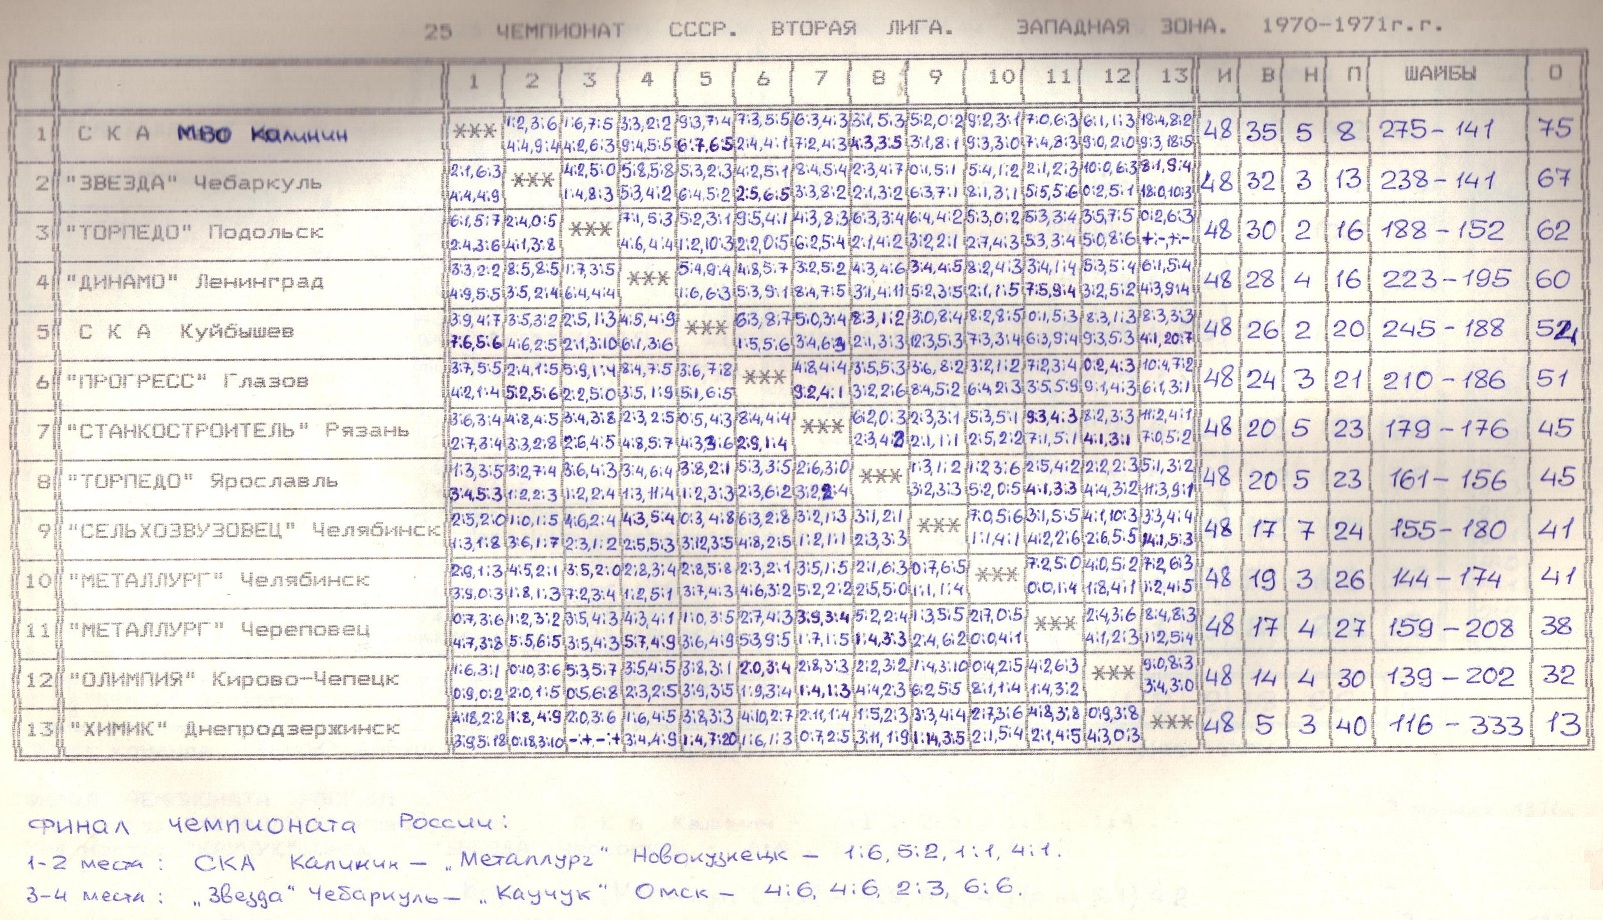 25 ЧЕМПИОНАТ СССР. ВТОРАЯ ЛИГА. ЗАПАДНАЯ ЗОНА. 1970-1971г.г.
1 2 3 4 5 6 7 8 9 10 11 12 13 И В Н П ШАЙБЫ О
1 С К А МВО Калинин *** 1:2,3:6 1:6,7:5 3:3,2:2 9:3,7:4 7:3,5:5 6:3,4:3 3:1,5:3 5:2,0:2 9:2,3:1 7:0,6:3 6:1,1:3 18:4,8:2 48 35 5 8 275-141 75
4:4,9:4 4:2,6:3 9:4,5:5 6:7,6:5 2:4,4:1 7:2,4:3 4:3,3:5 3:1,8:1 9:3,3:0 7:4,8:3 9:0,2:0 9:3,18:5
2 "ЗВЕЗДА" Чебаркуль 2:1,6:3 *** 4:2,5:0 5:8,5:8 5:3,2:3 4:2,5:1 8:4,5:4 2:3,4:7 0:1,5:1 5:4,1:2 2:1,2:3 10:0,6:3 8:1,9:4 48 32 3 13 238-141 67
4:4,4:9 1:4,8:3 5:3,4:2 6:4,5:2 2:5,6:5 3:3,8:2 2:1,3:2 6:3,7:1 8:1,3:1 5:5,5:6 0:2,5:1 18:0,10:3
3 "ТОРПЕДО" Подольск 6:1,5:7 2:4,0:5 *** 7:1,5:3 5:2,3:1 9:5,4:1 4:3,8:3 6:3,3:4 6:4,4:2 5:3,0:2 5:3,3:4 3:5,7:5 0:2,6:3 48 30 2 16 188-152 62
2:4,3:6 4:1,3:8 4:6,4:4 1:2,10:3 2:2,0:5 6:2,5:4 2:1,4:2 3:2,2:1 2:7,4:3 5:3,3:4 5:0,8:6 +:-,+:-
4 "ДИНАМО" Ленинград 3:3,2:2 8:5,8:5 1:7,3:5 *** 5:4,9:4 4:8,5:7 3:2,5:2 4:3,4:6 3:4,4:5 8:2,4:3 3:4,1:4 5:3,5:4 6:1,5:4 48 28 4 16 223-195 60
4:9,5:5 3:5,2:4 6:4,4:4 1:6,6:3 5:3,9:1 8:4,7:5 3:1,4:11 5:2,3:5 2:1,1:5 7:5,9:4 3:2,5:2 4:3,9:4
5 С К А Куйбышев 3:9,4:7 3:5,3:2 2:5,1:3 4:5,4:9 *** 6:3,8:7 5:0,3:4 8:3,1:2 3:0,8:4 8:2,8:5 0:1,5:3 8:3,1:3 8:3,3:3 48 26 2 20 245-188 54
7:6,5:6 4:6,2:5 2:1,3:10 6:1,3:6 1:5,5:6 3:4,6:3 2:1,3:3 12:3,5:3 7:3,3:4 6:3,9:4 9:3,5:3 4:1,20:7
6 "ПРОГРЕСС" Глазов 3:7,5:5 2:4,1:5 5:9,1:4 8:4,7:5 3:6,7:8 *** 4:8,4:4 3:5,5:3 3:6,8:2 3:2,1:2 7:2,3:4 0:2,4:3 10:4,7:2 48 24 3 21 210-186 51
4:2,1:4 5:2,5:6 2:2,5:0 3:5,1:9 5:1,6:5 9:2,4:1 3:2,2:6 8:4,5:2 6:4,2:3 3:5,5:9 9:1,4:3 6:1,3:1
7 "СТАНКОСТРОИТЕЛЬ" Рязань 3:6,3:4 4:8,4:5 3:4,3:8 2:3,2:5 0:5,4:3 8:4,4:4 *** 6:2,0:3 2:3,3:1 5:3,5:1 9:3,4:3 8:2,3:3 11:2,4:1 48 20 5 23 179-176 45
2:7,3:4 3:3,2:8 2:6,4:5 4:8,5:7 4:3,3:6 2:9,1:4 2:3,4:2 2:1,1:1 2:5,2:2 7:1,5:1 4:1,3:1 7:0,5:2
8 "ТОРПЕДО" Ярославль 1:3,3:5 3:2,7:4 3:6,4:3 3:4,6:4 3:8,2:1 5:3,3:5 2:6,3:0 *** 1:3,1:2 1:2,3:6 2:5,4:2 2:2,2:3 5:1,3:2 48 20 5 23 161-156 45
3:4,5:3 1:2,2:3 1:2,2:4 1:3,11:4 1:2,3:3 2:3,6:2 3:2,2:4 3:2,3:3 5:2,0:5 4:1,3:3 4:4,3:2 11:3,9:1
9 "СЕЛЬХОЗВУЗОВЕЦ" Челябинск 2:5,2:0 1:0,1:5 4:6,2:4 4:3,5:4 0:3,4:8 6:3,2:8 3:2,1:3 3:1,2:1 *** 7:0,5:6 3:1,5:5 4:1,10:3 3:3,4:4 48 17 7 24 155-180 41
1:3,1:8 3:6,1:7 2:3,1:2 2:5,5:3 3:12,3:5 4:8,2:5 1:2,1:1 2:3,3:3 1:1,4:1 4:2,2:6 2:6,5:5 14:1,5:3
10 "МЕТАЛЛУРГ" Челябинск 2:9,1:3 4:5,2:1 3:5,2:0 2:8,3:4 2:8,5:8 2:3,2:1 3:5,1:5 2:1,6:3 0:7,6:5 *** 7:2,5:0 4:0,5:2 7:2,6:3 48 19 3 26 144-174 41
3:9,0:3 1:8,1:3 7:2,3:4 1:2,5:1 3:7,4:3 4:6,3:2 5:2,2:2 2:5,5:0 1:1,1:4 0:0,1:4 1:8,4:1 1:2,4:5
11 "МЕТАЛЛУРГ" Череповец 0:7,3:6 1:2,3:2 3:5,4:3 4:3,4:1 1:0,3:5 2:7,4:3 3:9,3:4 5:2,2:4 1:3,5:5 2:7,0:5 *** 2:4,3:6 8:4,8:3 48 17 4 27 159-208 38
4:7,3:8 5:5,6:5 3:5,4:3 5:7,4:9 3:6,4:9 5:3,9:5 1:7,1:5 1:4,3:3 2:4,6:2 0:0,4:1 4:1,2:3 1:2,5:4
12 "ОЛИМПИЯ" Кирово-Чепецк 1:6,3:1 0:10,3:6 5:3,5:7 3:5,4:5 3:8,3:1 2:0,3:4 2:8,3:3 2:2,3:2 1:4,3:10 0:4,2:5 4:2,6:3 *** 9:0,8:3 48 14 4 30 139-202 32
0:9,0:2 2:0,1:5 0:5,6:8 2:3,2:5 3:9,3:5 1:9,3:4 1:4,1:3 4:4,2:3 6:2,5:5 8:1,1:4 1:4,3:2 3:4,3:0
13 "ХИМИК" Днепродзержинск 4:18,2:8 1:8,4:9 2:0,3:6 1:6,4:5 3:8,3:3 4:10,2:7 2:11,1:4 1:5,2:3 3:3,4:4 2:7,3:6 4:8,3:8 0:9,3:8 *** 48 5 3 40 116-333 13
3:9,5:18 0:18,3:10 -:+,-:+ 3:4,4:9 1:4,7:20 1:6,1:3 0:7,2:5 3:11,1:9 1:14,3:5 2:1,5:4 2:1,4:5 4:3,0:3
Финал чемпионата России:
1-2 места: СКА Калинин – „Металлург" Новокузнецк – 1:6, 5:2, 1:1, 4:1.
3-4 места: „Звезда" Чебаркуль – „Каучук" Омск – 4:6, 4:6, 2:3, 6:6.